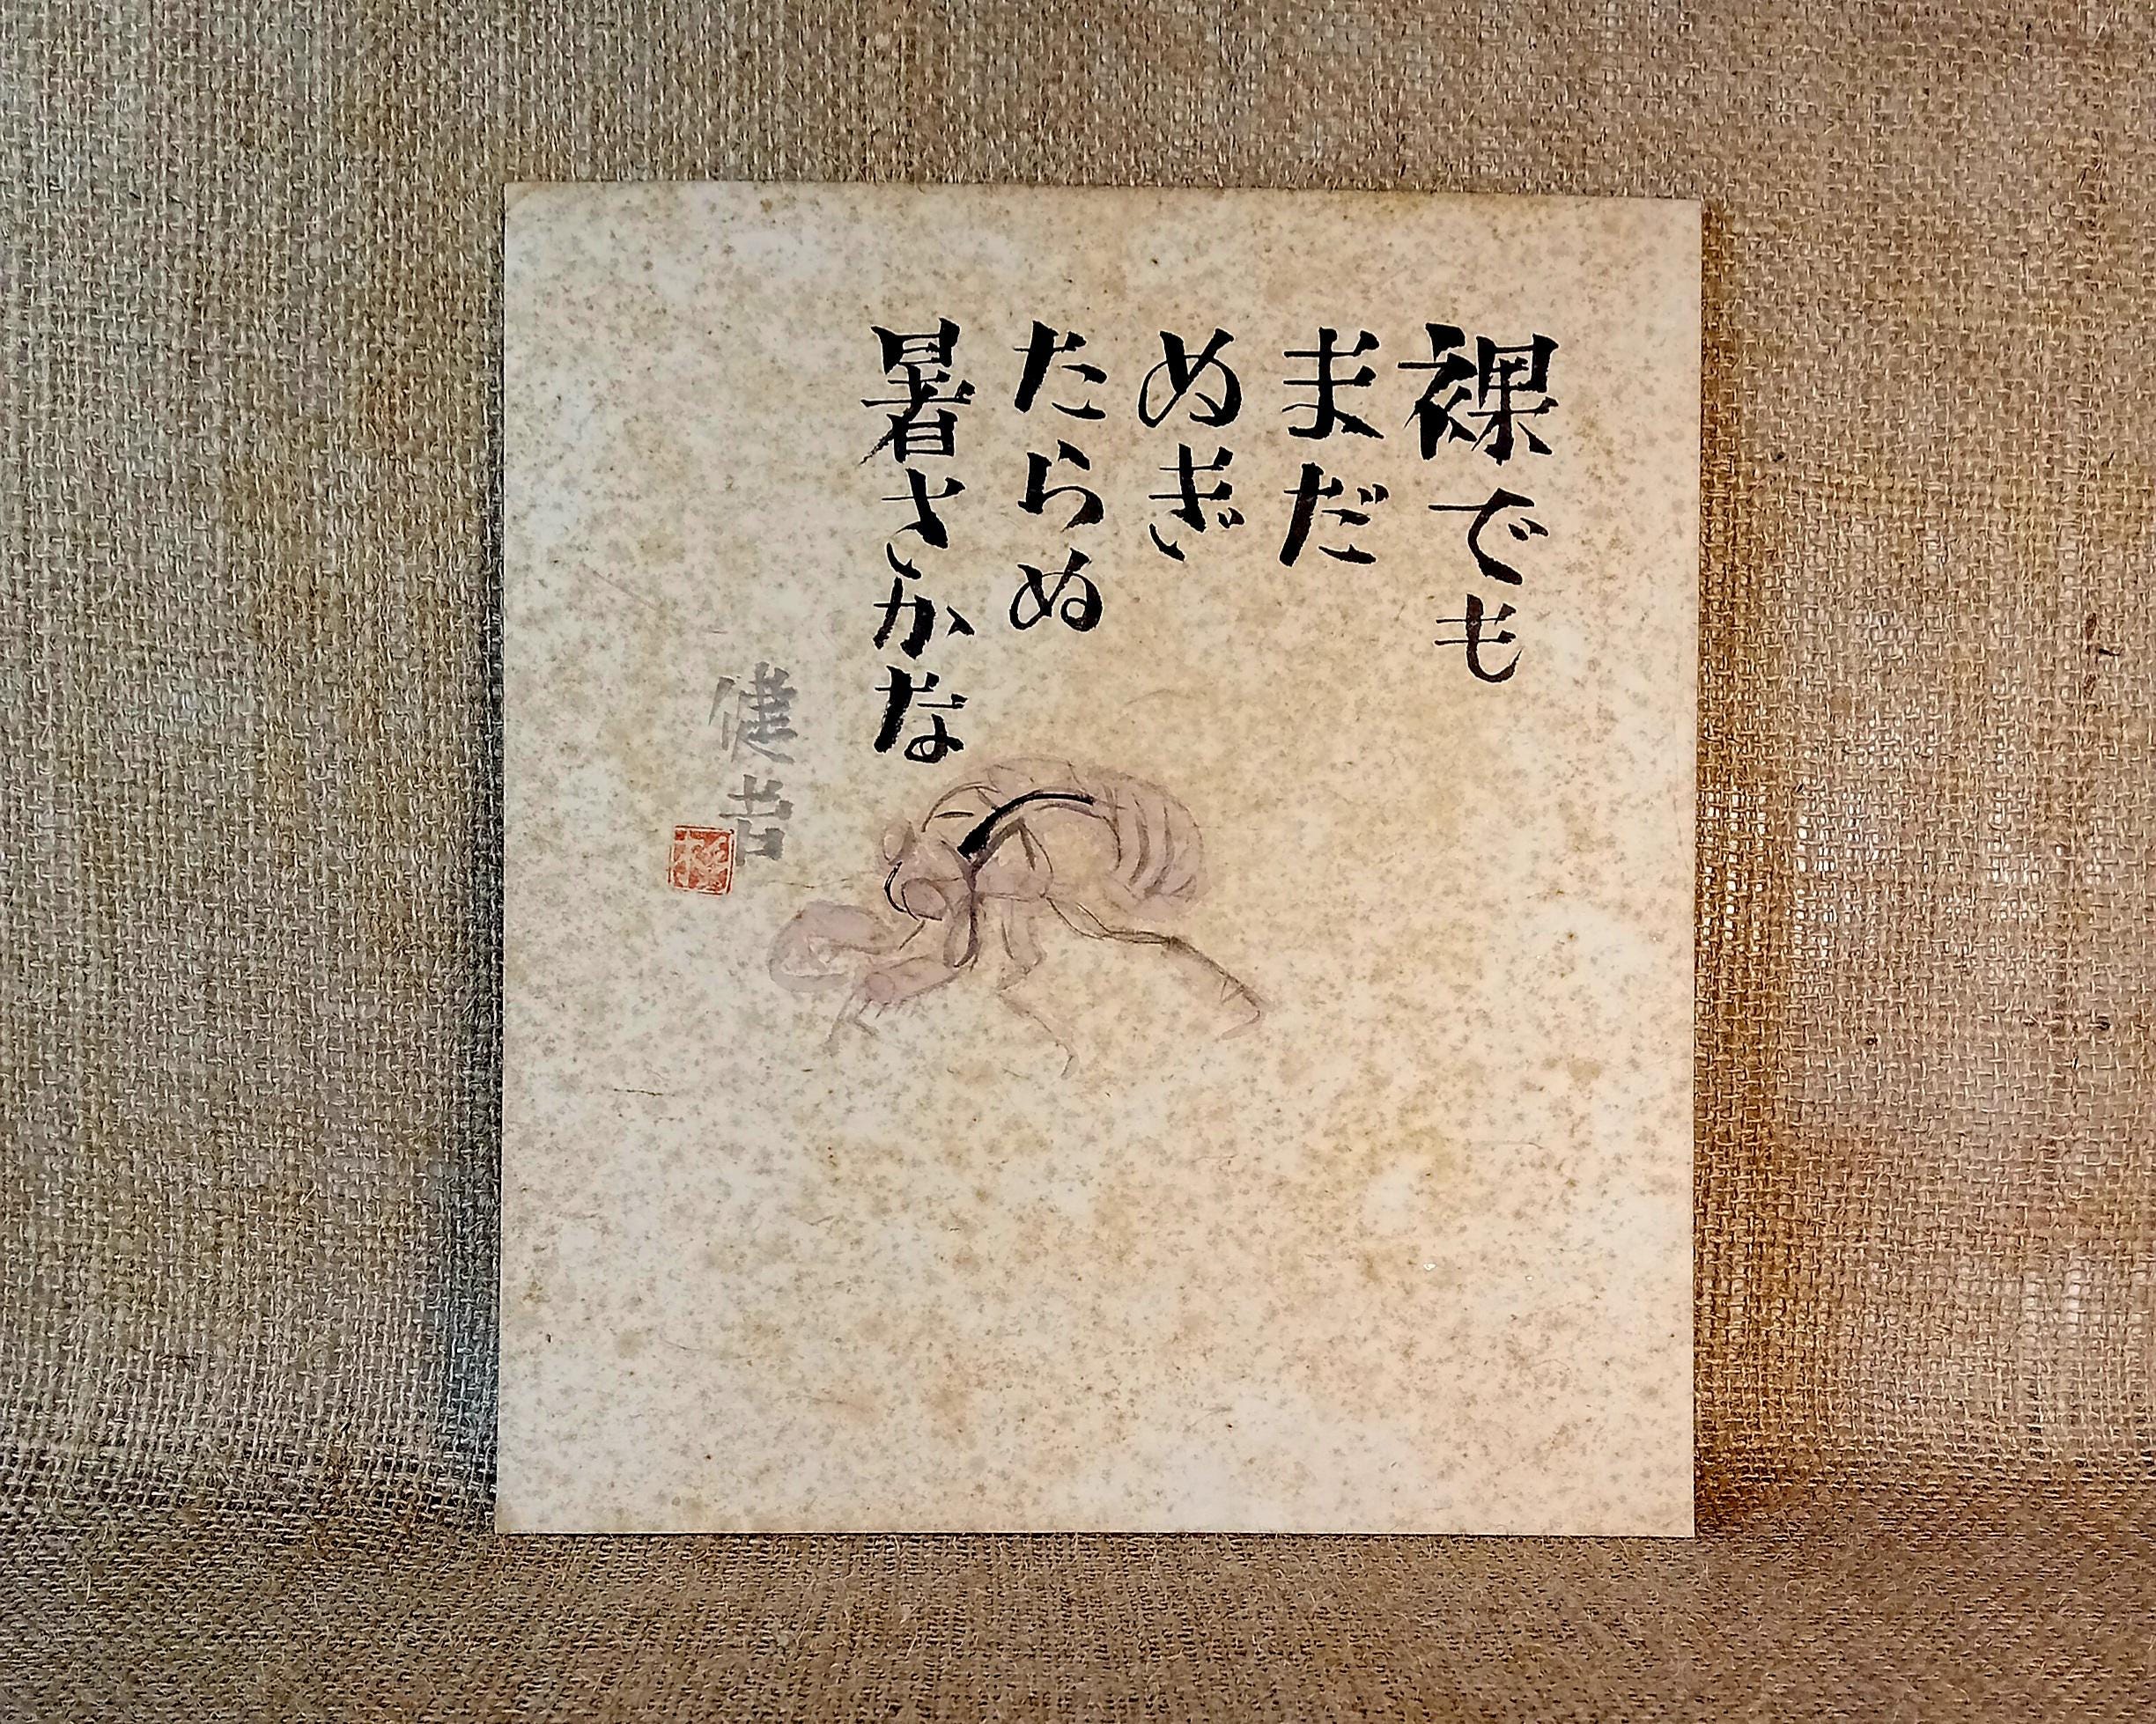 裸でも
まだ
ぬぎ
たらぬ
暑さかな